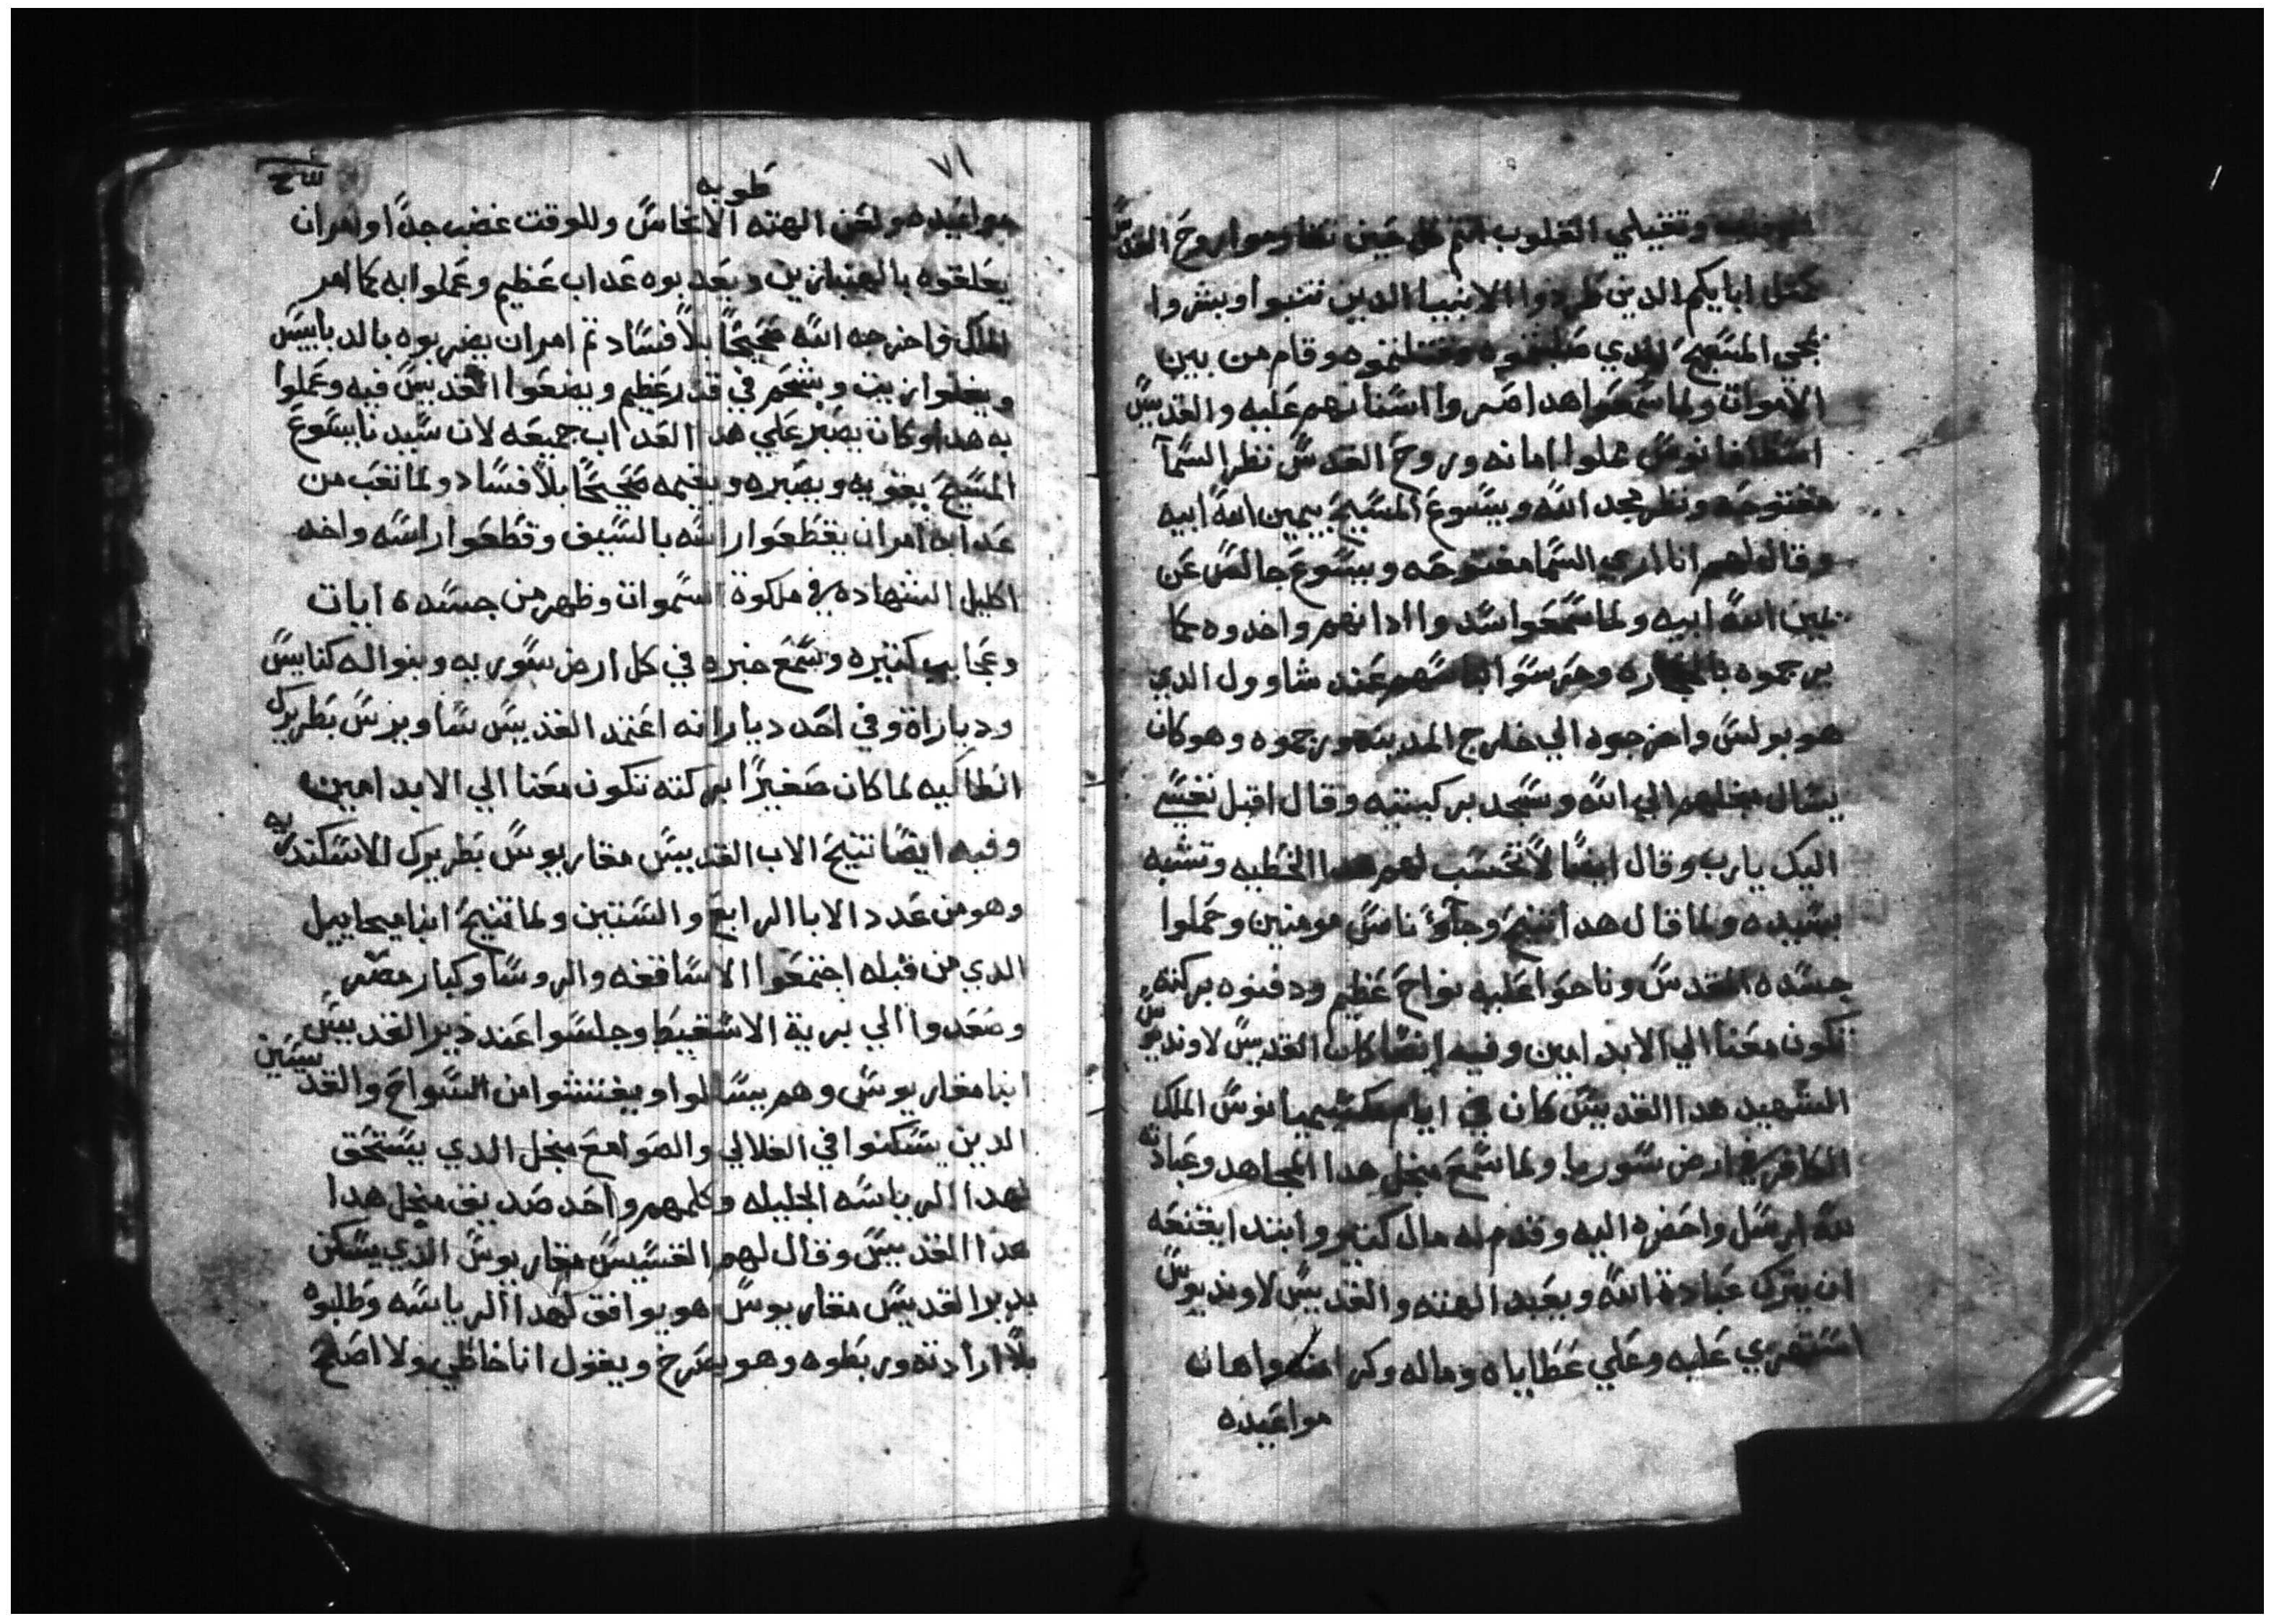 وتقيلي القلوب انتم كل حين تقاوموا روح القدس
كمثل ابايكم الدين طردوا الانبيا الدين تنبوا وبشروا
بمجي المسيح الدي صلبتموه وقتلتموه وقام من بين
الاموات ولما سمعوا هدا اصروا اسنانهم عليه والقديس
اسطافانوس مملوا امانه وروح القدس نظر السمآ
مفتوحه ونظر مجد الله ويسوع المسيح بيمين الله ابيه
وقال لهم انا اري السما مفتوحه ويسوع جالس عن
يمين الله ابيه ولما سمعوا سدوا ادانهم واخدوه كما
يرجموه بالحجاره وحرسوا لباسهم عند شاوول الدي
هو بولس واخرجوه الي خارج المدينه ورجموه وهو كان
يسال مجلهم الي الله وسجد بركبتيه وقال اقبل نفسي
اليك يارب وقال ايضا لا تحسب لهم هدا الخطيه وتشبه
بسيده ولما قال هدا تنيح وجآوا ناس مومنين وحملوا
جسده المقدس وناحوا عليه نواح عظيم ودفنوه بركته
تكون معنا الي الابد امين وفيه ايضا كان القديس لاونديوس
الشهيد هدا القديس كان في ايام مكسيميانوس الملك
الكافر في ارض سوريا ولما سمع مجل هدا المجاهد وعبادته
لله ارسل واحضره اليه وقدم له مال كتير وابتدا يقنعه
ان يترك عبادة الله ويعبد الهته والقديس لاونديوس
استهزي عليه وعلي عطاياه وماله وكرامته واهان
مواعيده
٧١
طوبه
مواعيده ولعن الهته الانجاس وللوقت غضب جدا وامران
يعلقوه بالهنبازين ويعدبوه عداب عظيم وعملوا به كما امر
الملك واخرجه الله صحيحا بلا فساد تم امران يضربوه بالدبابيس
ويغلوا زيت وشحم في قدر عظيم ويضعوا القديس فيه وعملوا
به هدا وكان يصبر علي هدا العداب جميعه لان سيدنا يسوع
المسيح يقويه ويصبره ويقيمه صحيحا بلا فساد ولما تعب من
عدابه امران يقطعوا راسه بالسيف وقطعوا راسه واخد
اكليل الشهاده في ملكوة السموات وظهر من جسده ايات
وعجايب كتيره وسمع خبره في كل ارض سوريه وبنوا له كنايس
وديارات وفي احد ديارانه اعتمد القديس ساويرس بطريرك
انطاكيه لما كان صغيرا بركته تكون معنا الي الابد امين
وفيه ايضا تنيح الاب القديس مقاريوس بطريرك الاسكندريه
وهو من عدد الابا الرابع والستين ولما تنيح انبا ميخاييل
الدي من قبله اجتمعوا الاساقفه والروسا وكبار مصر
وصعدوا الي برية الاسقيط وجلسوا عند دير القديس
انبا مقاريوس وهم يسالوا ويفتشوا من السواح والقديسين
الدين يسكنوا في القلالي والصوامع مجل الدي يستحق
لهدا الرياسه الجليله وكلمهم واحد صديق مجل هدا
هدا القديس وقال لهم القسيس مقاريوس الدي يسكن
بدير القديس مقاريوس هو يوافق لهدا الرياسه وطلبوه
بلا ارادته وربطوه وهو يصرخ ويقول انا خاطي ولا اصلح